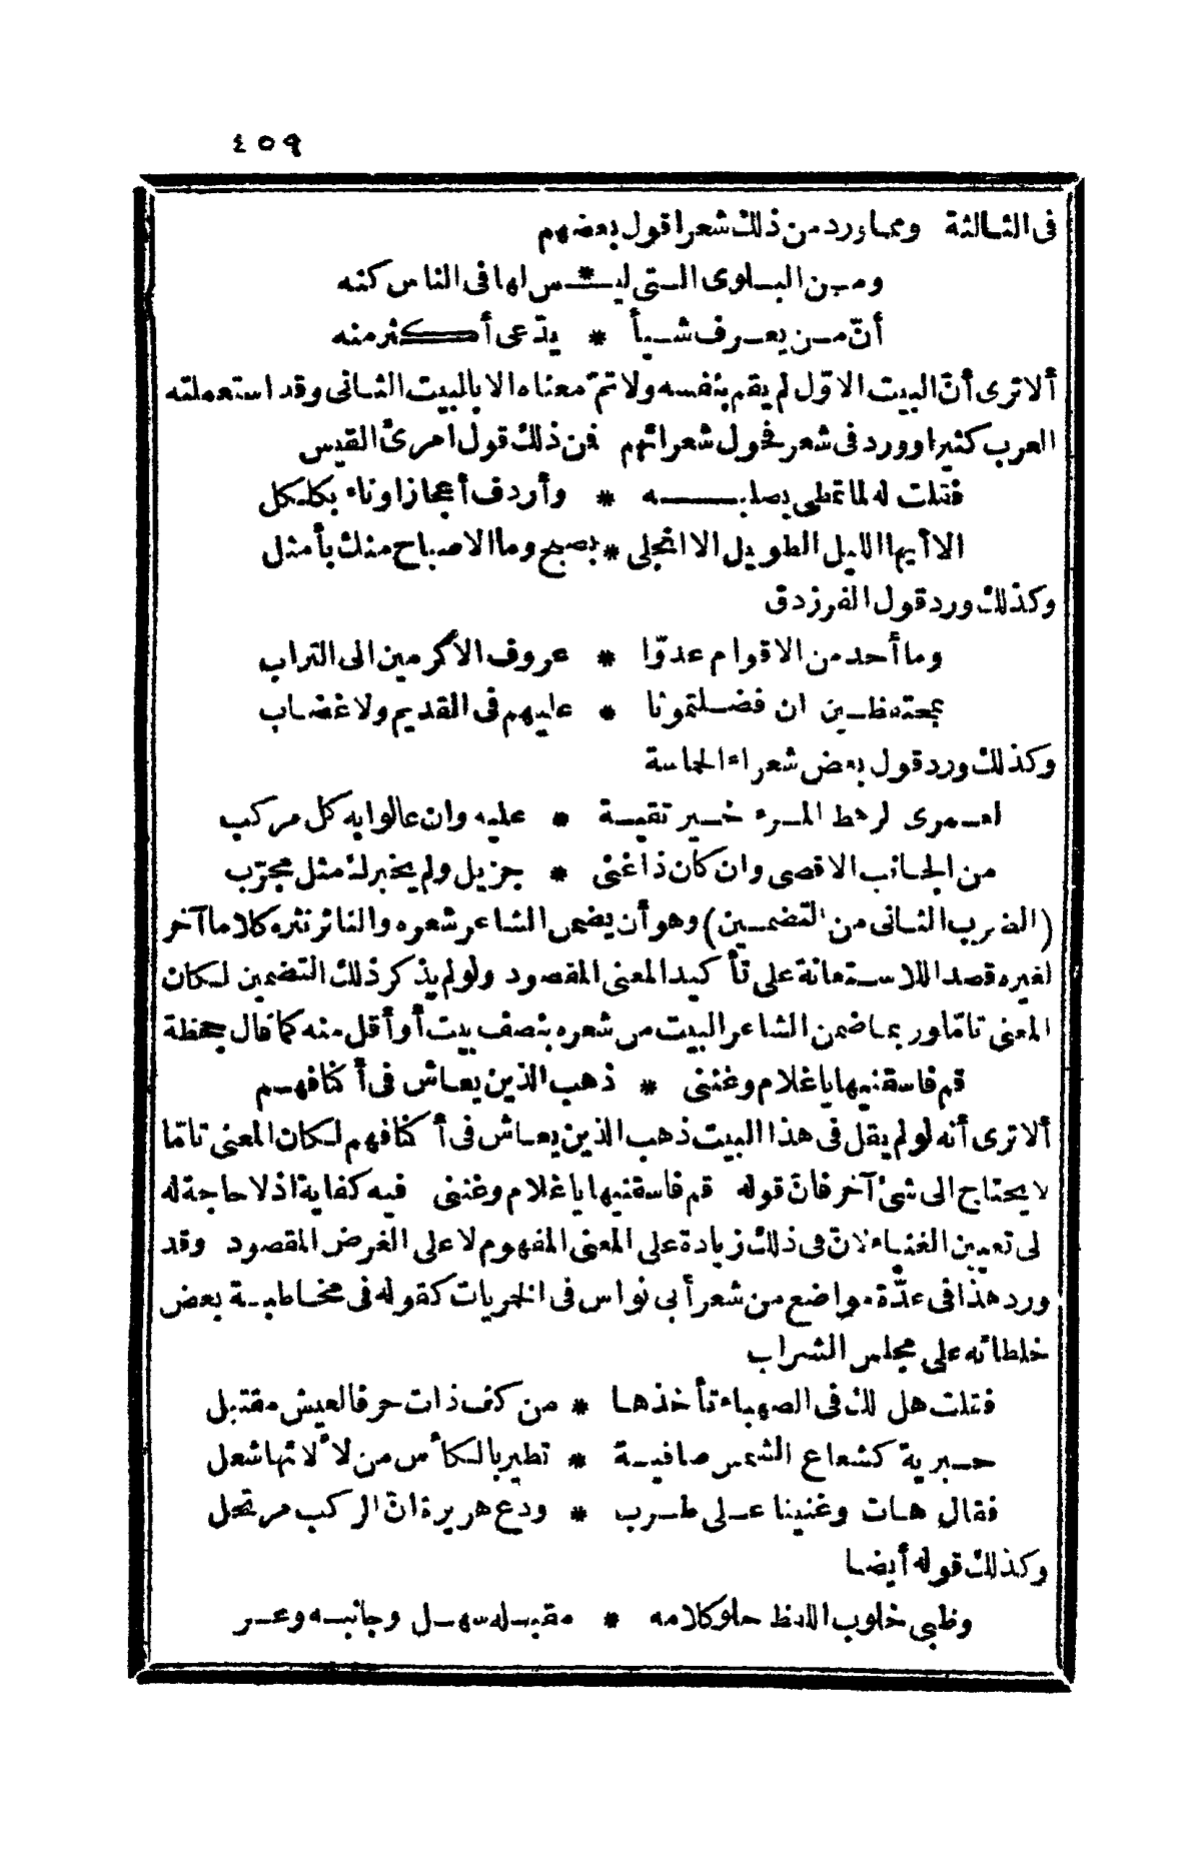 ٤٥٩
فى الثالثة ومما ورد من ذلك شعرا قول بعضهم
ومن البلوى التى ليـ * ـس لها فى الناس كنه
أنّ من يعرف شيأ * يدّعى أكثر منه
ألا ترى أنّ البيت الاوّل لم يقم بنفسه ولا تمّ معناه الا بالبيت الثانى وقد استعملته
العرب كثيرا وورد فى شعر فحول شعرائهم فمن ذلك قول امرئ القيس
فقلت له لما تمطى بصلبه * وأردف أعجازا وناء بكلكل
الا أيها الليل الطويل الا انجلى * بصبح وما الاصباح منك بأمثل
وكذلك ورد قول الفرزدق
وما أحد من الاقوام عدّوا * عروف الاكرمين الى التراب
بمحتفظين ان فضلتمونا * عليهم فى القديم ولا غضاب
وكذلك ورد قول بعض شعراء الحماسة
لعمرى لرهط المرء خير تقية * عليه وان عالوا به كل مركب
من الجانب الاقصى وان كان ذا غنى * جزيل ولم يخبرك مثل مجرّب
(الضرب الثانى من التضمين) وهو أن يضمن الشاعر شعره والناثر نثره كلاما آخر
لغيره قصدا للاستعانة على تأكيد المعنى المقصود ولو لم يذكر ذلك التضمين لكان
المعنى تامّا وربما ضمن الشاعر البيت من شعره بنصف بيت أو أقل منه كما قال جحظة
قم فاسقنيها يا غلام وغننى * ذهب الذين يعاش فى أكنافهم
ألا ترى أنه لو لم يقل فى هذا البيت ذهب الذين يعاش فى أكنافهم لكان المعنى تامّا
لا يحتاج الى شئ آخر فانّ قوله قم فاسقنيها يا غلام وغننى فيه كفاية اذ لا حاجة له
لى تعيين الغناء لانّ فى ذلك زيادة على المعنى المفهوم لا على الغرض المقصود وقد
ورد هذا فى عدّة مواضع من شعر أبى نواس فى الخمريات كقوله فى مخاطبة بعض
خلطائه على مجلس الشراب
فقلت هل لك فى الصهباء تأخذها * من كف ذات حر فالعيش مقتبل
حيرية كشعاع الشمس صافية * تطير بالكأس من لألائها شعل
فقال هات وغنينا على طرب * ودع هريرة انّ الركب مرتحل
وكذلك قوله أيضا
وظبى خلوب اللفظ حلو كلامه * مقبله سهل وجانبه وعر